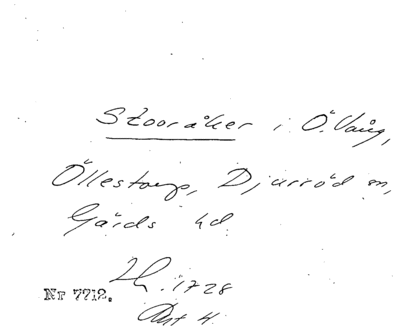 Stooråker i Ö. Vång,
Öllestorp, Djurröd sn,
Gärds hd
Lh. 1728
Nr 7712.
Akt 4